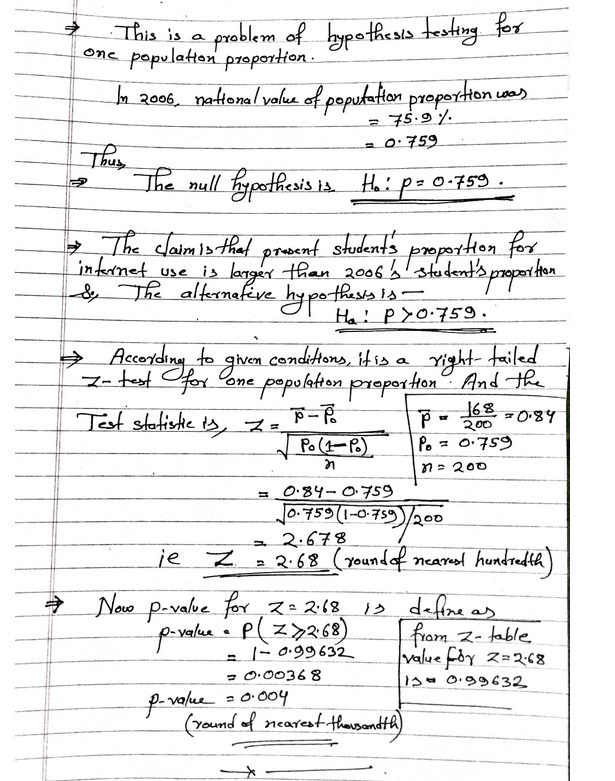 ⇒ This is a problem of hypothesis testing for
one population proportion.
In 2006, national value of population proportion was
= 75.9 %
= 0.759
Thus,
⇒ The null hypothesis is H₀ : p = 0.759 .
⇒ The claim is that present student's proportion for
internet use is larger than 2006's student's proportion
So, The alternative hypothesis is —
Ha : P > 0.759 .
⇒ According to given conditions, it is a right-tailed
Z-test for one population proportion. And the
Test statistic is, Z = (p̅ - p̅₀) / √(P₀(1-P₀)/n)
p̅ = 168/200 = 0.84
P₀ = 0.759
n = 200
= (0.84 - 0.759) / √(0.759(1-0.759)/200)
= 2.678
ie Z = 2.68 (round of nearest hundredth)
⇒ Now p-value for Z = 2.68 is define as
p-value = P(Z ≥ 2.68)
= 1 - 0.99632
= 0.00368
p-value = 0.004
(round of nearest thousandth)
from Z-table
value for Z = 2.68
is = 0.99632